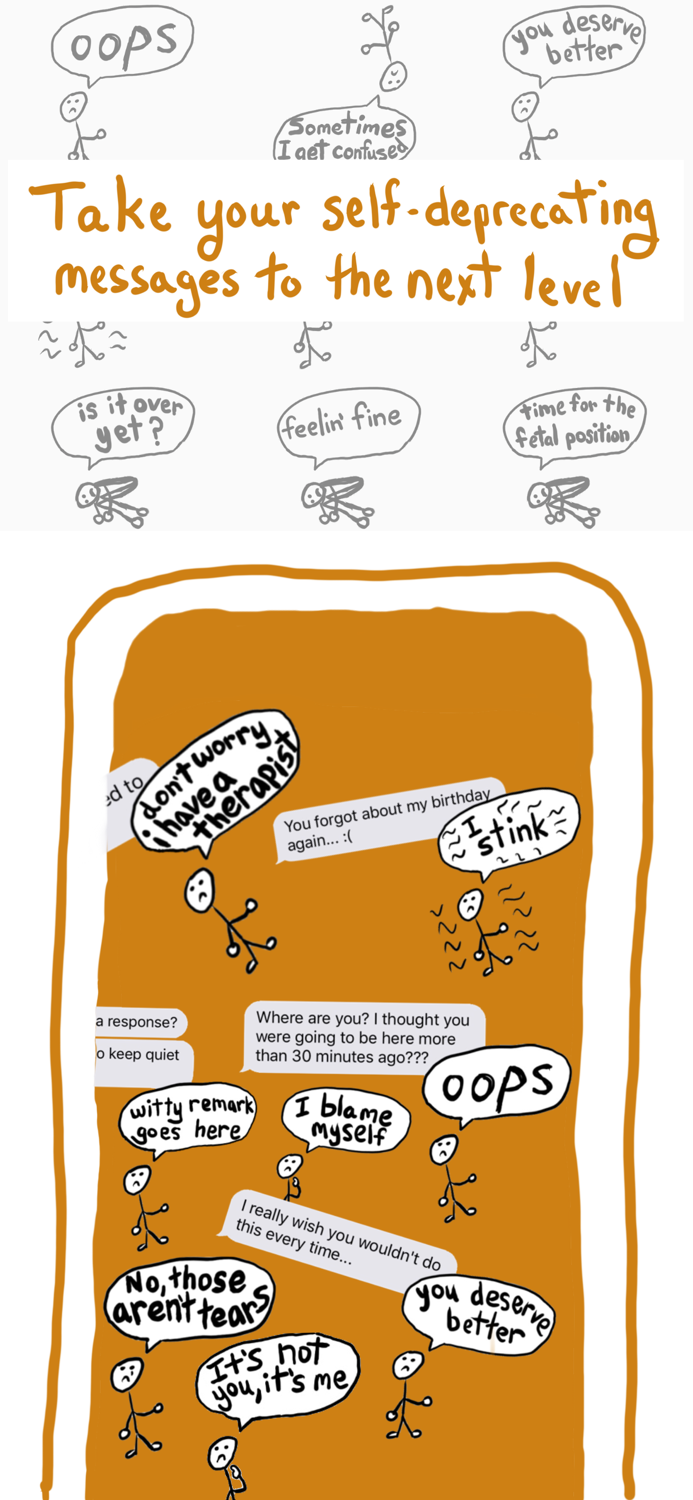 oops
Sometimes
I get confused
you deserve
better
Take your self-deprecating
messages to the next level
is it over
yet?
feelin' fine
time for the
fetal position
ed to
don't worry
i have a
therapist
You forgot about my birthday
again... :(
I
stink
a response?
o keep quiet
Where are you? I thought you
were going to be here more
than 30 minutes ago???
oops
witty remark
goes here
I blame
myself
I really wish you wouldn't do
this every time...
No, those
aren't tears
you deserve
better
It's not
you, it's me